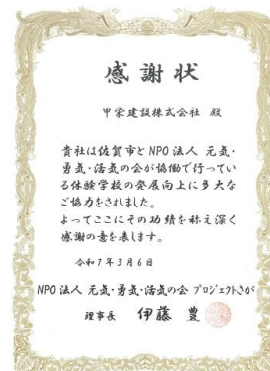 感謝状
甲栄建設株式会社 殿
貴社は佐賀市とNPO法人 元気・
勇気・活気の会が協働で行ってい
る体験学校の発展向上に多大な
ご協力をされました。
よってここにその功績を称え深く
感謝の意を表します。
令和7年3月6日
NPO法人 元気・勇気・活気の会 プロジェクトさが
理事長 伊藤 豊